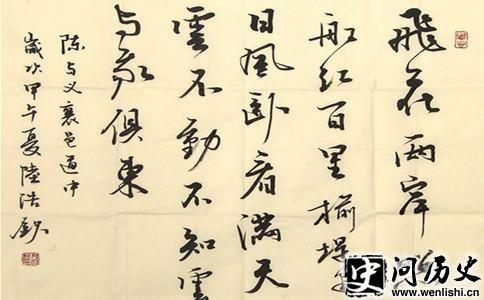 飛花兩岸
船紅百里榆堤
日風卧看滿天
雲不動不知雲
与我俱東
陈与义襄邑道中
歲次甲午夏陸浩
史问历史
www.wenlishi.cn